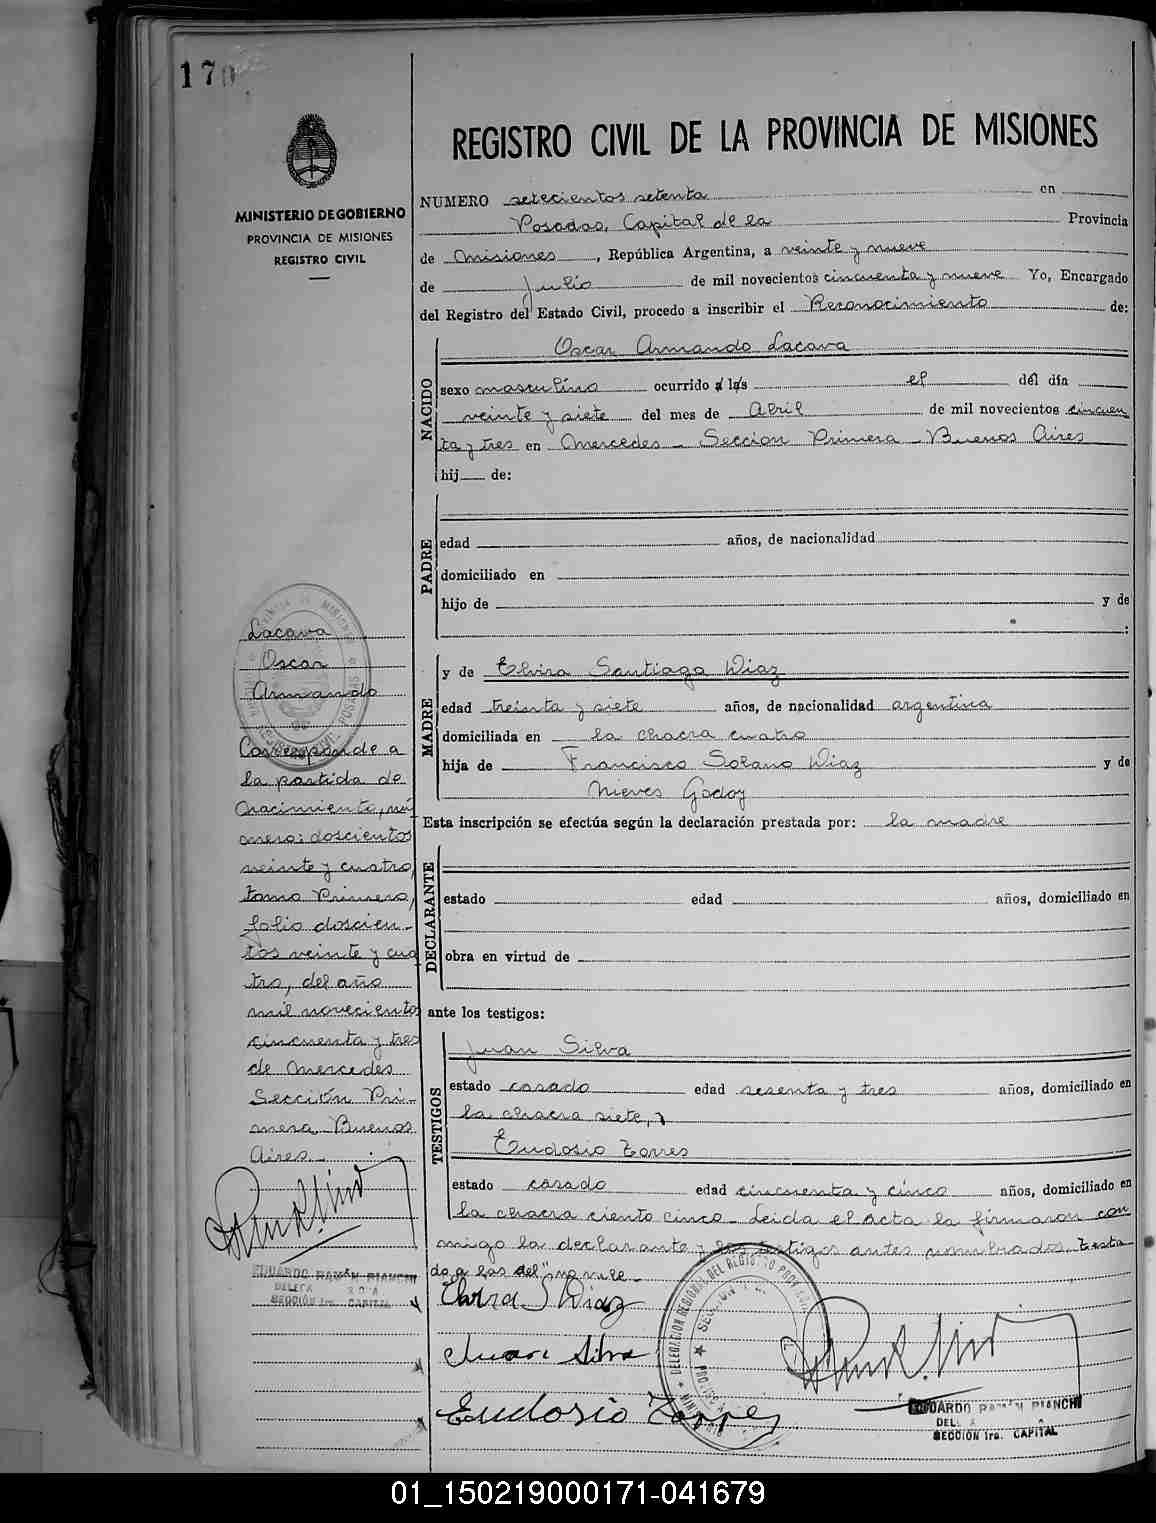 170
MINISTERIO DE GOBIERNO
PROVINCIA DE MISIONES
REGISTRO CIVIL
REGISTRO CIVIL DE LA PROVINCIA DE MISIONES
NUMERO setecientos setenta en
Posadas, Capital de la Provincia
de Misiones, República Argentina, a veinte y nueve
de Julio de mil novecientos cincuenta y nueve Yo, Encargado
del Registro del Estado Civil, procedo a inscribir el Reconocimiento de:
NACIDO
Oscar Armando Lacava
sexo masculino ocurrido a las el del día
veinte y siete del mes de Abril de mil novecientos cincuen
ta y tres en Mercedes - Sección Primera - Buenos Aires
hij de:
PADRE
edad años, de nacionalidad
domiciliado en
hijo de y de
:
MADRE
y de Elvira Santiaga Diaz
edad treinta y siete años, de nacionalidad argentina
domiciliada en la chacra cuatro
hija de Francisco Solano Diaz y de
Nieves Godoy
Esta inscripción se efectúa según la declaración prestada por: la madre
DECLARANTE
estado edad años, domiciliado en
obra en virtud de
ante los testigos:
TESTIGOS
Juan Silva
estado casado edad sesenta y tres años, domiciliado en
la chacra siete, y
Eudosio Torres
estado casado edad cincuenta y cinco años, domiciliado en
la chacra ciento cinco - Leida el acta la firmaron con
migo la declarante y los testigos antes nombrados. Testa
do, a las del "no vale -
Elvira S Diaz
Juan Silva
Eudosio Torres
EDUARDO RAMÓN BIANCHI
SECCIÓN 1ra. CAPITAL
Lacava
Oscar
Armando
Corresponde a
la partida de
Nacimiento, nú
mero: doscientos
veinte y cuatro,
tomo Primero,
folio doscien-
tos veinte y cua
tro, del año
mil novecientos
cincuenta y tres
de Mercedes
Sección Pri-
mera, Buenos
Aires.-
EDUARDO RAMÓN BIANCHI
SECCIÓN 1ra. CAPITAL
01_150219000171-041679